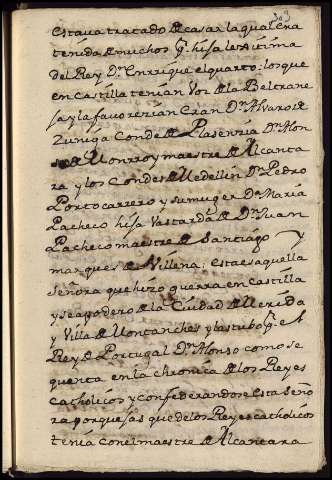 303
estava tratado de casar la qual era
tenida de muchos pr. hija lexitima
del Rey Dn. Enrrique el quarto: los que
en Castilla tenian Voz de la Beltrane
ja y la favorezian eran Dn. Alvaro de
Zuniga Conde de Plasenzia Dn. Alon
so de Monrroy maestre de Alcanta
ra y los Condes de Medellin Dn. Pedro
Portocarrero y su muger Da. Maria
Pacheco hija Vastarda de Dn. Juan
Pacheco maestre de Santiago y
marques de Villena; esta es aquella
señora que hizo guerra en Castilla
y se apodero de la Ciudad de Merida
y Villa de Montanches y las tubo pr. el
Rey de Portugal Dn. Alonso como se
quenta en la chronica de los Reyes
catholicos y confederandose esta Seño
ra por quejas que de los Reyes catholicos
tenia con el maestre de Alcantara